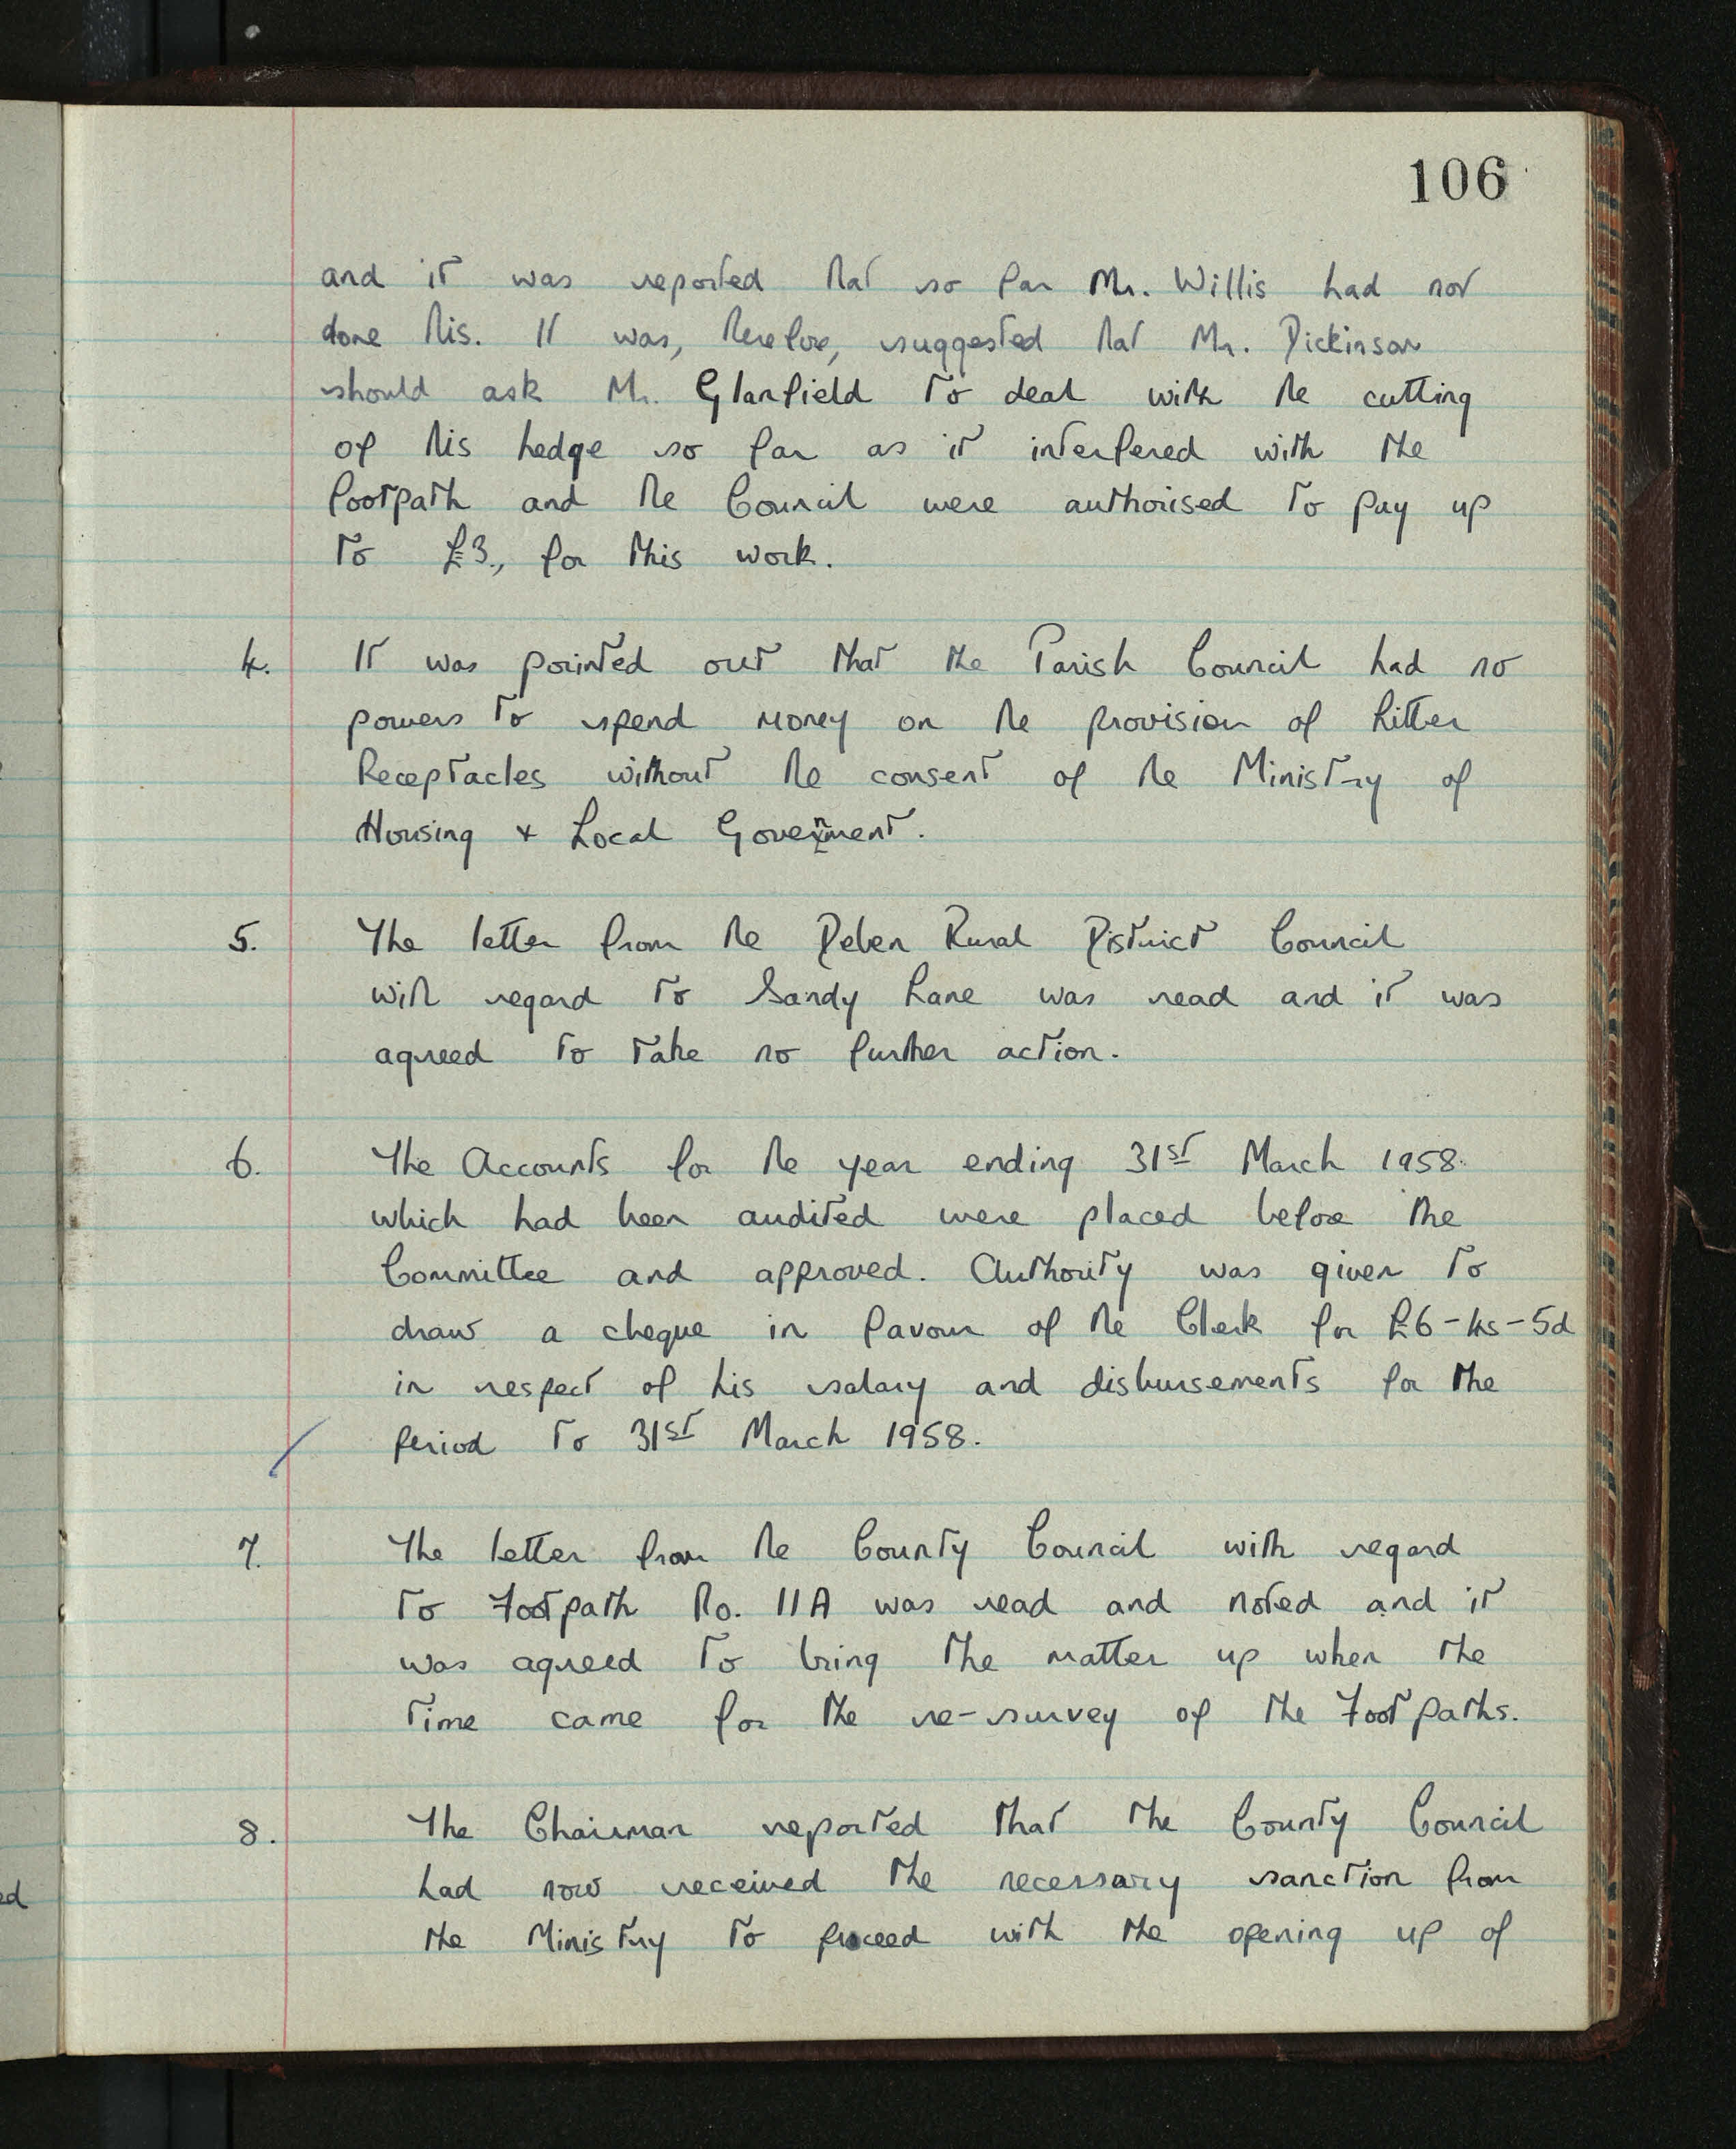 106
and it was reported that so far Mr. Willis had not
done this. It was, therefore, suggested that Mr. Dickinson
should ask Mr. Glanfield to deal with the cutting
of this hedge so far as it interfered with the
footpath and the Council were authorised to pay up
to £3., for this work.
4. It was pointed out that the Parish Council had no
powers to spend money on the provision of Litter
Receptacles without the consent of the Ministry of
Housing + Local Government.
5. The letter from the Deben Rural District Council
with regard to Sandy Lane was read and it was
agreed to take no further action.
6. The Accounts for the year ending 31st March 1958.
which had been audited were placed before the
Committee and approved. Authority was given to
draw a cheque in favour of the Clerk for £6-4s-5d
in respect of his salary and disbursements for the
period to 31st March 1958.
7. The letter from the County Council with regard
to Footpath No. 11A was read and noted and it
was agreed to bring the matter up when the
time came for the re-survey of the Footpaths.
8. The Chairman reported that the County Council
had now received the necessary sanction from
ed
the Ministry to proceed with the opening up of